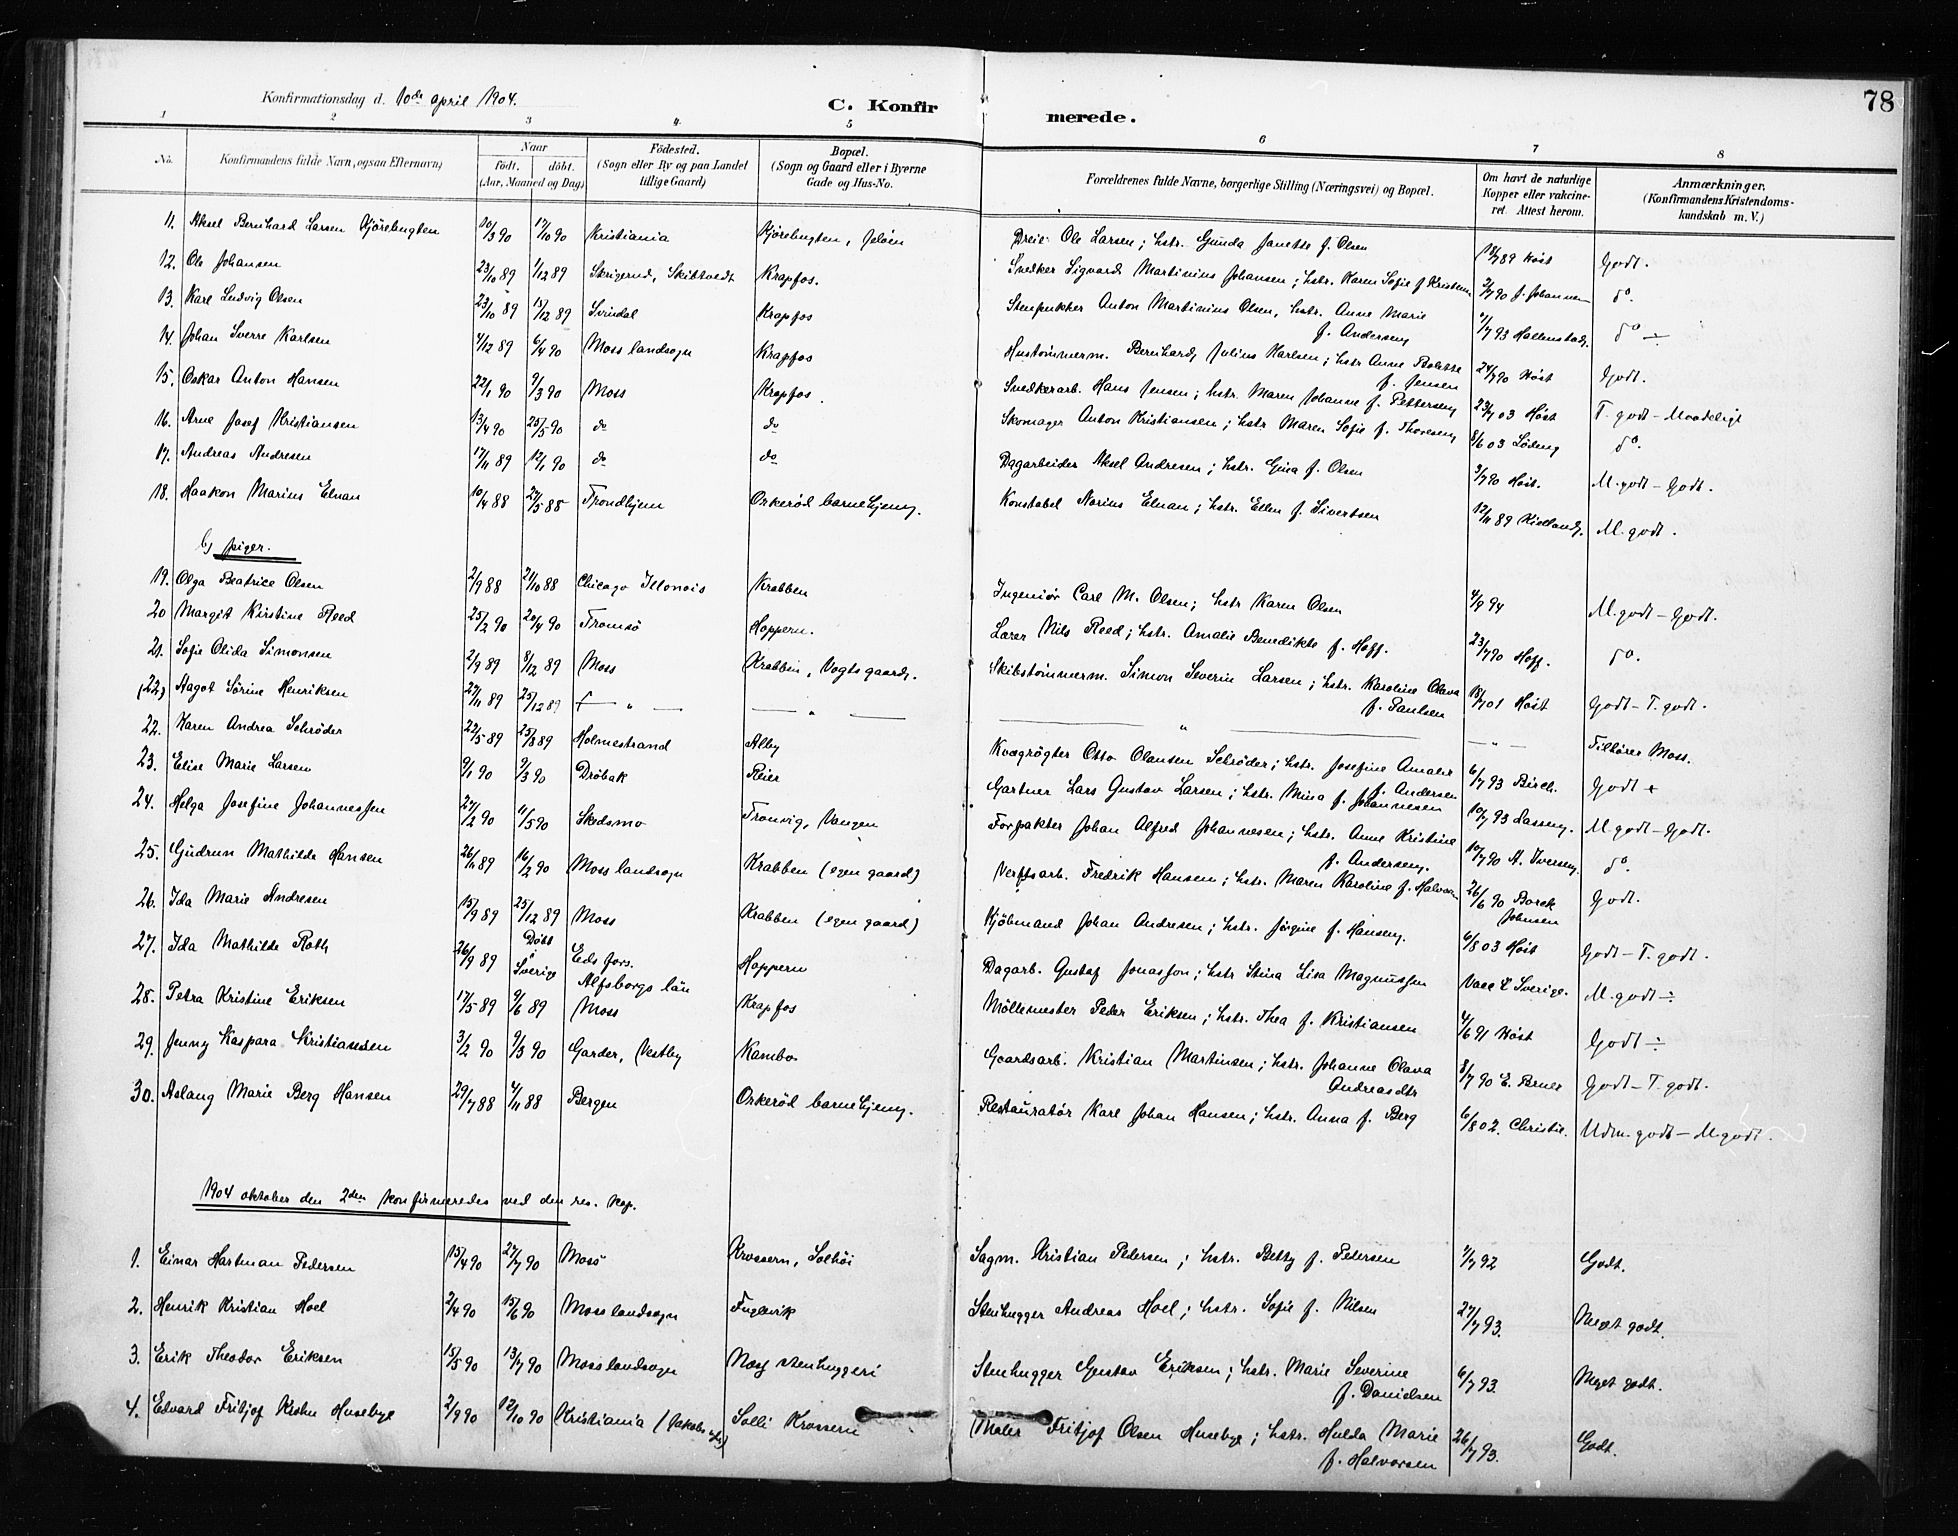 78
Konfirmationsdag d. 10de april 1904.
C. Konfirmerede.
1 2 3 4 5 6 7 8
No. Konfirmandens fulde Navn, ogsaa Efternavn, Naar födt. döbt. (Aar, Maaned og Dag) Födested. (Sogn eller By og paa Landet tillige Gaard) Bopæl. (Sogn og Gaard eller i Byerne Gade og Hus-No. Forældrenes fulde Navne, borgerlige Stilling (Næringsvei) og Bopæl. Om havt de naturlige Kopper eller vakcineret. Attest herom. Anmærkninger. (Konfirmandens Kristendomskundskab m. V.)
11. Aksel Bernhard Larsen Kjørebugten 10/3 90 17/10 90 Kristiania Kjørebugten, Jeløen Ole Larsen; hstr. Gunda Janette f. Olsen 89 Høst Godt.
12. Ole Johansen 23/10 89 1/12 89 Skrigerud, Skibtvedt Krapfos. Snedker Sigvard Martinius Johansen; hstr. Karen Sofie f. 2/7 90 J. Johannen do.
13. Karl Ludvig Olsen 23/10 89 15/12 89 Svindal Krapfos Stenpukker Anton Martinius Olsen, hstr. Anne Marie f. Andersen 93 Hallenstad. do ÷
14. Johan Sverre Karlsen 4/12 89 6/4 90 Moss landsogn Krapfos Hustømmerm. Bernhard Julius Karlsen; hstr Anne Bolette f. Jensen 24/7 90 Høst Godt.
15. Oskar Anton Hansen 22/1 90 9/3 90 Moss Krapfos. Snedkerarb. Hans Jensen; hstr. Maren Johanne f. Pettersen 23/7 03 Høst T. godt - Maadeligt
16. Arne Josef Kristiansen 13/4 90 25/5 90 do do Skomager Anton Kristiansen; hstr. Maren Sofie f. Thoresen 8/6 03 Lødeng do.
17. Andreas Andresen 17/11 89 12/1 90 do do Dagarbeider Aksel Andresen; hstr. Gina f. Olsen 3/7 90 Høst. M. godt - Godt.
18. Haakon Marius Elnan 10/4 88 27/5 88 Trondhjem Orkerød barnehjem. Konstabel Norius Elnan; hstr. Ellen f. Sivertsen 12/11 89 Kielland. M. godt.
b) piger.
19. Olga Beatrice Olsen 2/9 88 21/10 88 Chicago Illonois Krabben Ingeniør Carl M. Olsen; hstr Karen Olsen 4/9 94 M. godt - Godt.
20 Margit Kirstine Reed 25/2 90 20/4 90 Tromsø Hoppern. Lærer Nils Reed; hstr. Amalie Benedikte f. Hoff. 23/7 90 Hoff. do.
21. Sofie Olida Simonsen 2/9 89 8/12 89 Moss Krabben, Vogts gaard. Skibstømmerm. Simon Severin Larsen; hstr. Karoline Olava f. Paulsen 18/7 01 Høst Godt - T. godt.
(22) Aagot Sørine Henriksen 27/11 89 25/12 89 — " — — " — — " — — " — Tilhører Moss.
22. Karen Andrea Schrøder 22/5 89 25/8 89 Holmestrand Alby Kvægrøgter Otto Olausen Schrøder; hstr. Josefine Amalie f. Andersen 6/7 93 Birch. Godt +
23. Elise Marie Larsen 9/1 90 9/3 90 Drøbak Reier Gartner Lars Gustav Larsen; hstr. Mina f. Johannesen 10/7 93 Lassen. M. godt - Godt.
24. Helga Josefine Johannessen 27/2 90 11/5 90 Skedsmo Tronvig, Vangen Forpakter Johan Alfred Johannesen; hstr. Anne Kristine f. Andersen. 10/7 90 A. Iversen do.
25. Gudrun Mathilde Hansen 26/11 89 16/2 90 Moss landsogn Krabben (egen gaard) Verftsarb. Fredrik Hansen; hstr. Maren Karoline f. Halvorsen 26/6 90 Borch Johnsen Godt.
26. Ida Marie Andresen 15/9 89 25/12 89 Moss Krabben (egen gaard) Kjøbmand Johan Andresen; hstr. Jørgine f. Hansen. 6/8 03 Høst Godt - T. godt.
27. Ida Mathilde Roth 26/9 89 Døbt i Sverige Eds fors. Alfsborgs län Hoppern Dagarb. Gustaf Jonasson; hstr Stina Lisa Magnussen Vacc i Sverige. M. godt ÷
28. Petra Kristine Eriksen 17/5 89 9/6 89 Moss Krapfos Møllemester Peder Eriksen; hstr. Thea f. Kristiansen 4/6 91 Høst Godt ÷
29. Jenny Kaspara Kristiansen 3/2 90 9/3 90 Garder, Vestby Kambo Gaardsarb. Kristian Martinsen; hstr. Johanne Olava Andreasdtr 8/7 90 E. Bruer Godt - T. godt.
30. Aslaug Marie Berg Hansen 29/7 88 4/11 88 Bergen Orkerød barnehjem. Restauratør Karl Johan Hansen; hstr. Anna f. Berg 6/8 02. Christie. Udm. godt - M. godt.
1904 oktober den 2den konfirmeredes ved den res. kap.
1. Einar Hartman Pedersen 15/4 90 27/7 90 Moss Krossern, Solhøi Sagm. Kristian Pedersen; hstr. Betty f. Petersen 92 Godt.
2. Henrik Kristian Hoel 2/4 90 15/6 90 Moss landsogn Fuglevik Stenhugger Andreas Hoel; hstr. Sofie f. Nilsen 27/7 93. Meget godt.
3. Erik Theodor Eriksen 15/5 90 13/7 90 Moss landsogn Næs stenhuggeri Stenhugger Gustav Eriksen; hstr. Marie Severine f. Danielsen 6/7 93. Meget godt.
4. Edvard Fritjof Krohn Husebye 2/9 90 12/10 90 Kristiania (Jakobs) Solli Krossern Maler Fritjof Olsen Husebye; hstr. Hulda Marie f. Halvorsen 26/7 93. Godt.